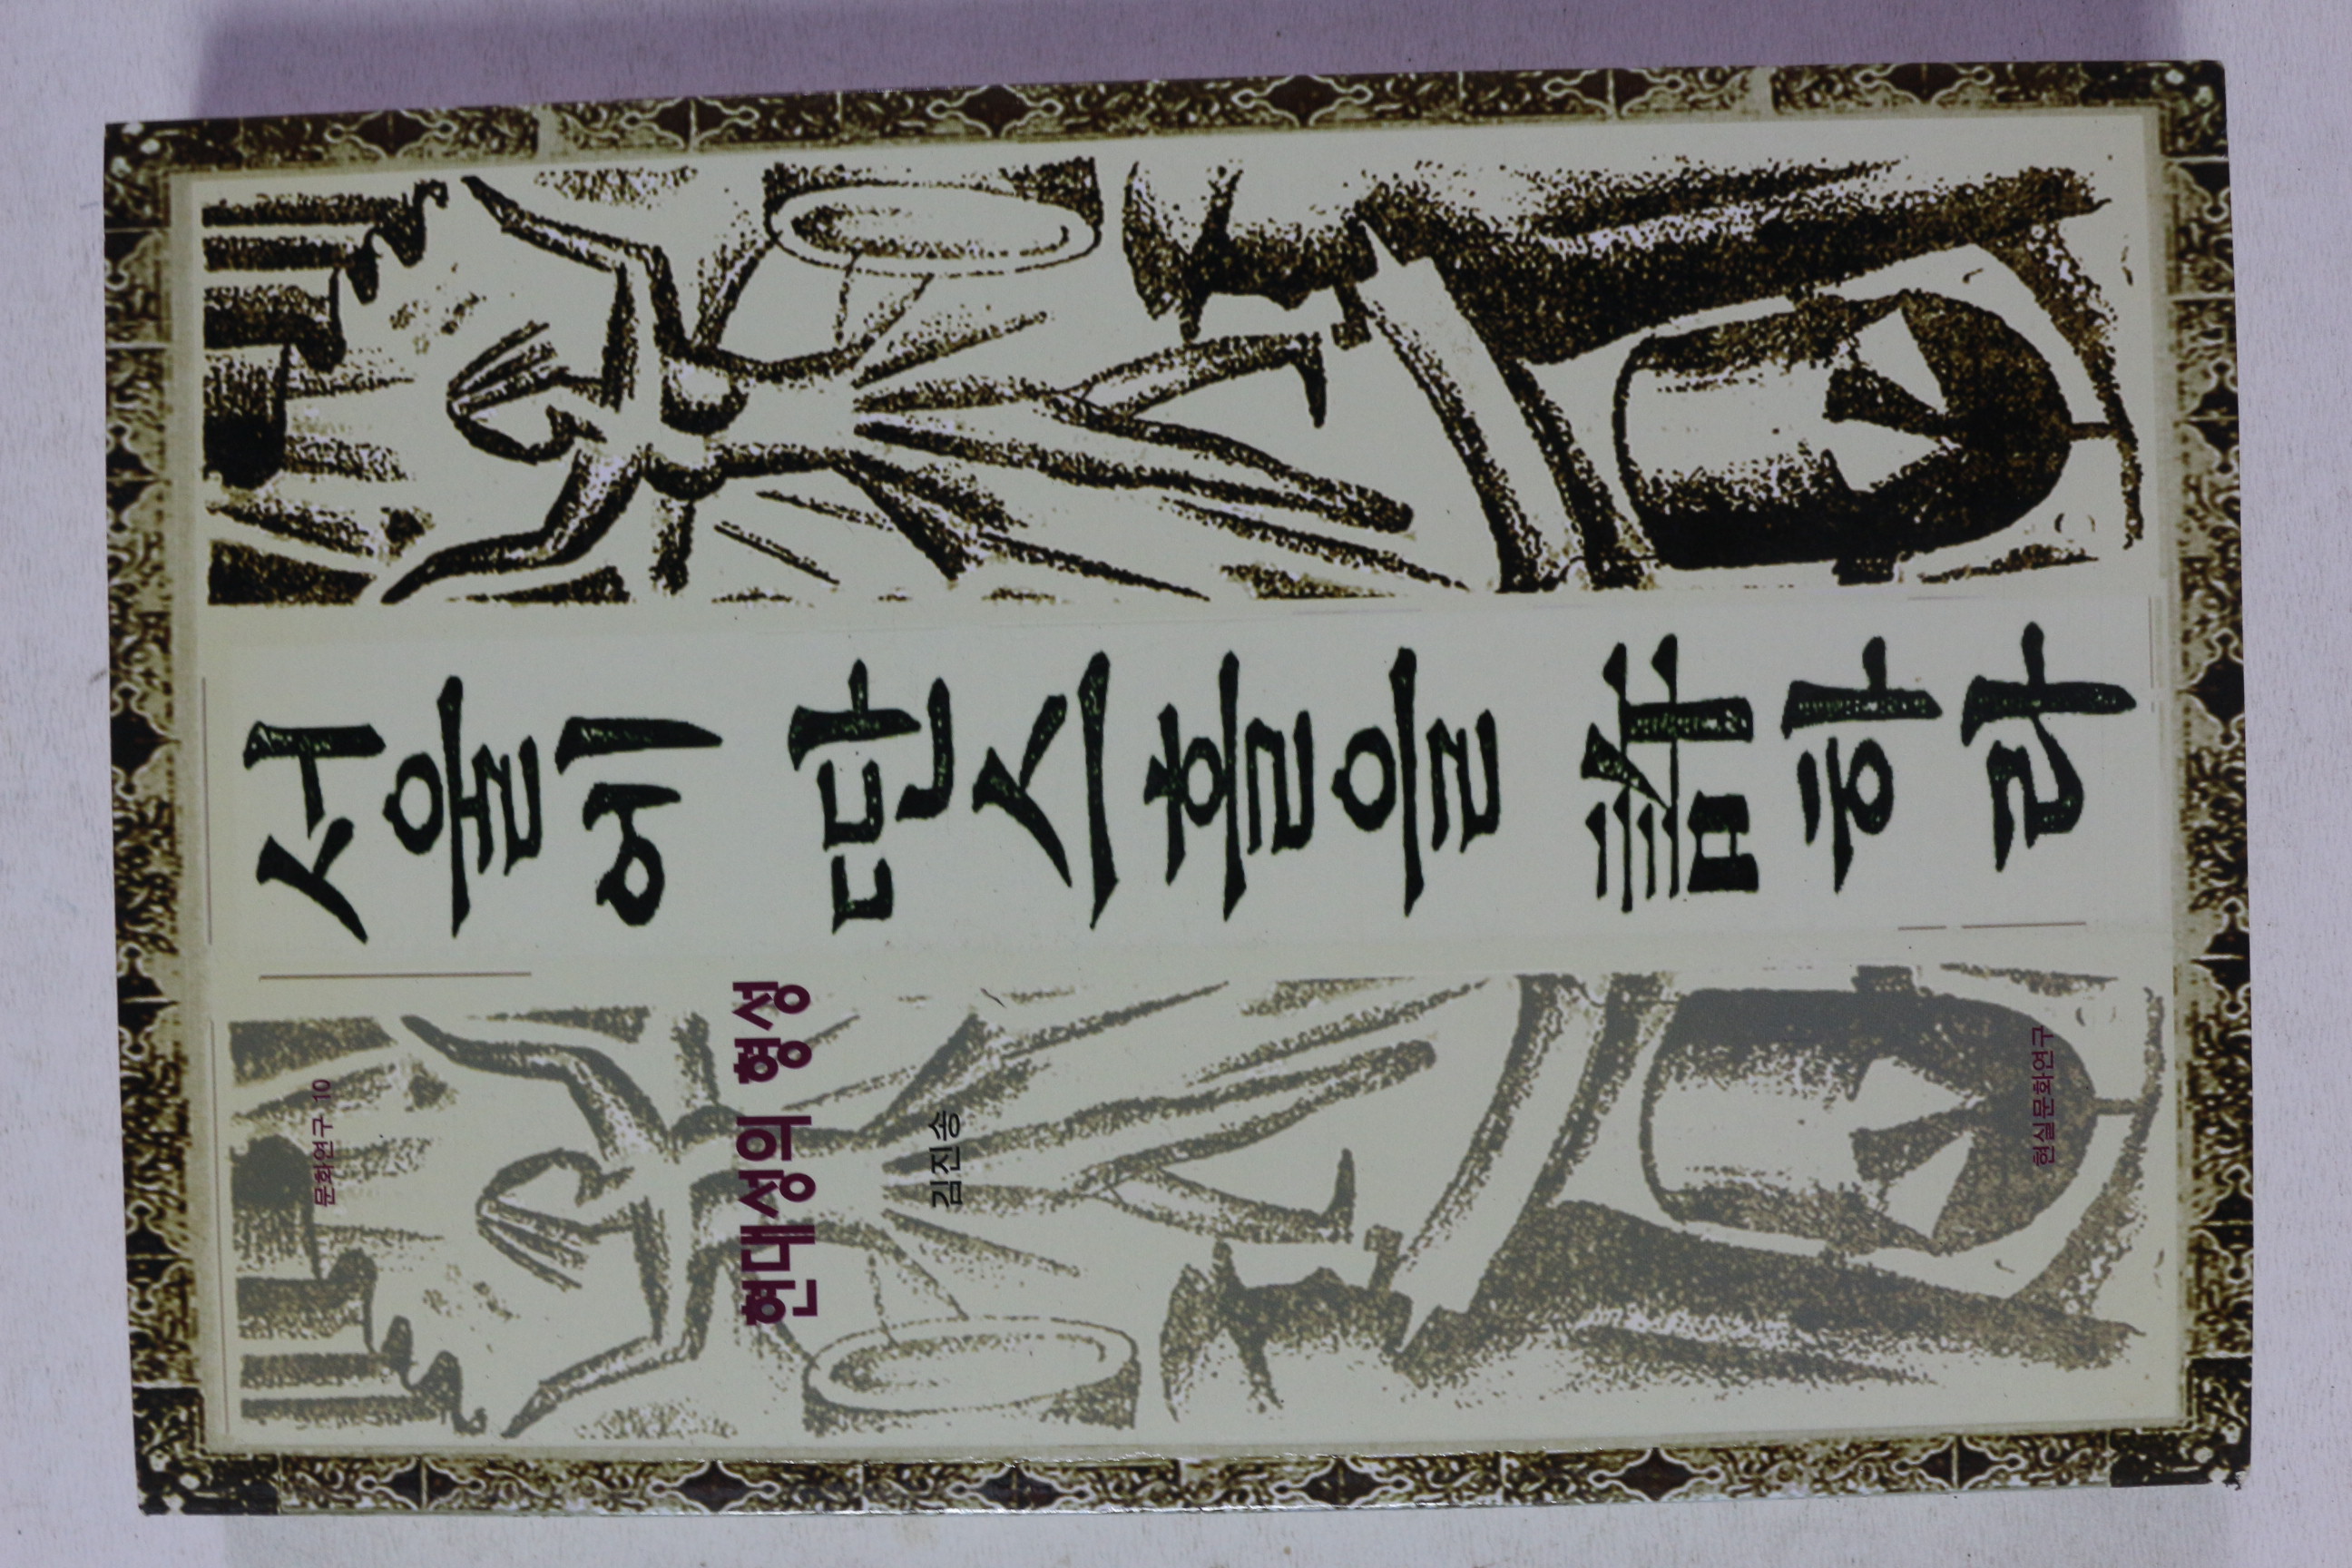 서울에 딴스홀을 許하라
문화연구 10
현대성의 형성
김진송
현실문화연구